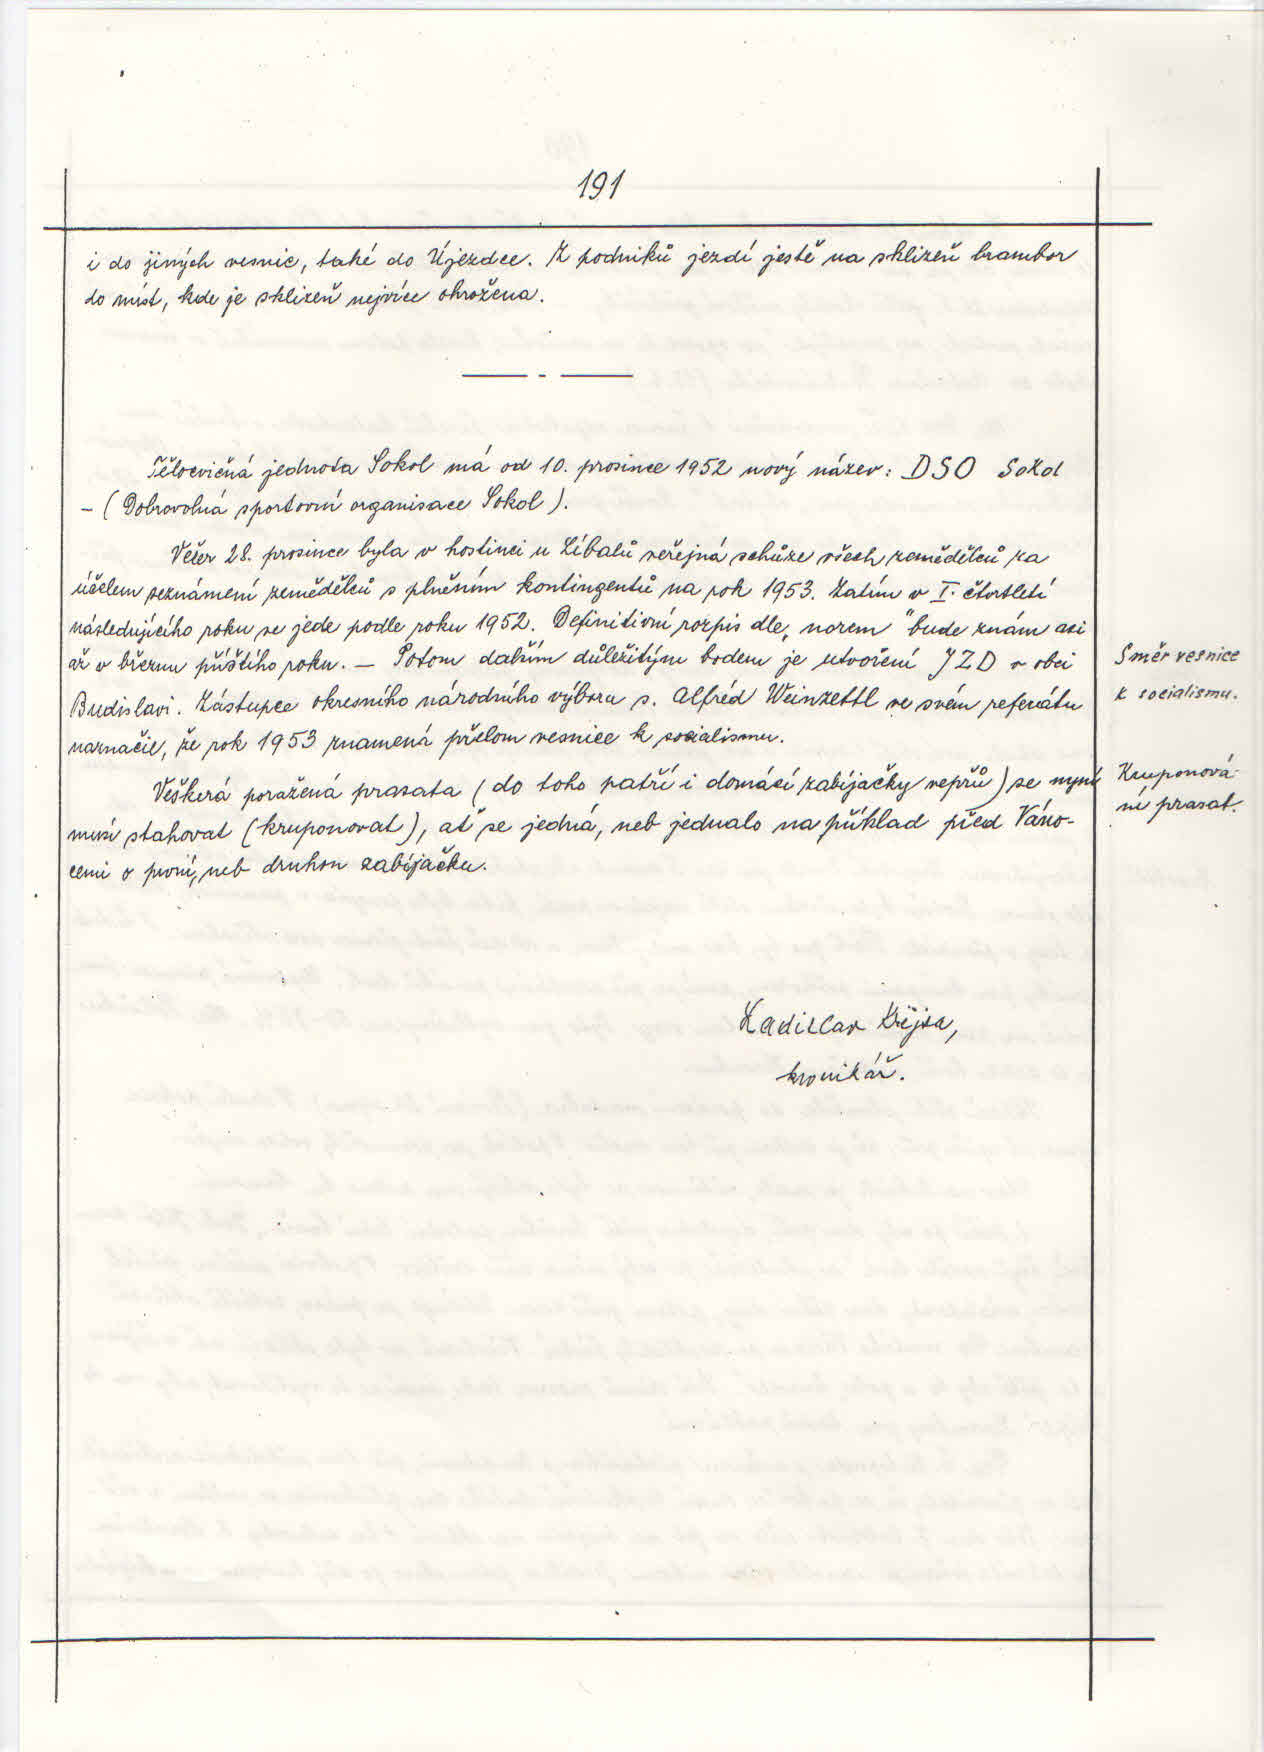 191
i do jiných vesnic, také do Újezdce. Z podniků jezdí ještě na sklizeň brambor
do míst, kde je sklizeň nejvíce ohrožena.
Tělocvičná jednota Sokol má od 10. prosince 1952 nový název: DSO Sokol
- (Dobrovolná sportovní organisace Sokol).
Večer 28. prosince byla v hostinci u Líbalů veřejná schůze všech zemědělců za
účelem seznámení zemědělců s plněním kontingentů na rok 1953. Zatím v I. čtvrtletí
následujícího roku se jede podle roku 1952. Definitivní rozpis dle „norem" bude znám asi
až v březnu příštího roku. - Potom dalším důležitým bodem je utvoření JZD v obci
Budislavi. Zástupce okresního národního výboru s. Alfréd Weinzettl ve svém referátu
naznačil, že rok 1953 znamená přelom vesnice k socialismu.
Směr vesnice
k socialismu.
Veškerá poražená prasata (do toho patří i domácí zabíjačky vepřů) se nyní
musí stahovat (kruponovat), ať se jedná, neb jednalo na příklad před Váno-
cemi o první, neb druhou zabíjačku.
Kruponová-
ní prasat.
Ladislav Krejsa,
kronikář.